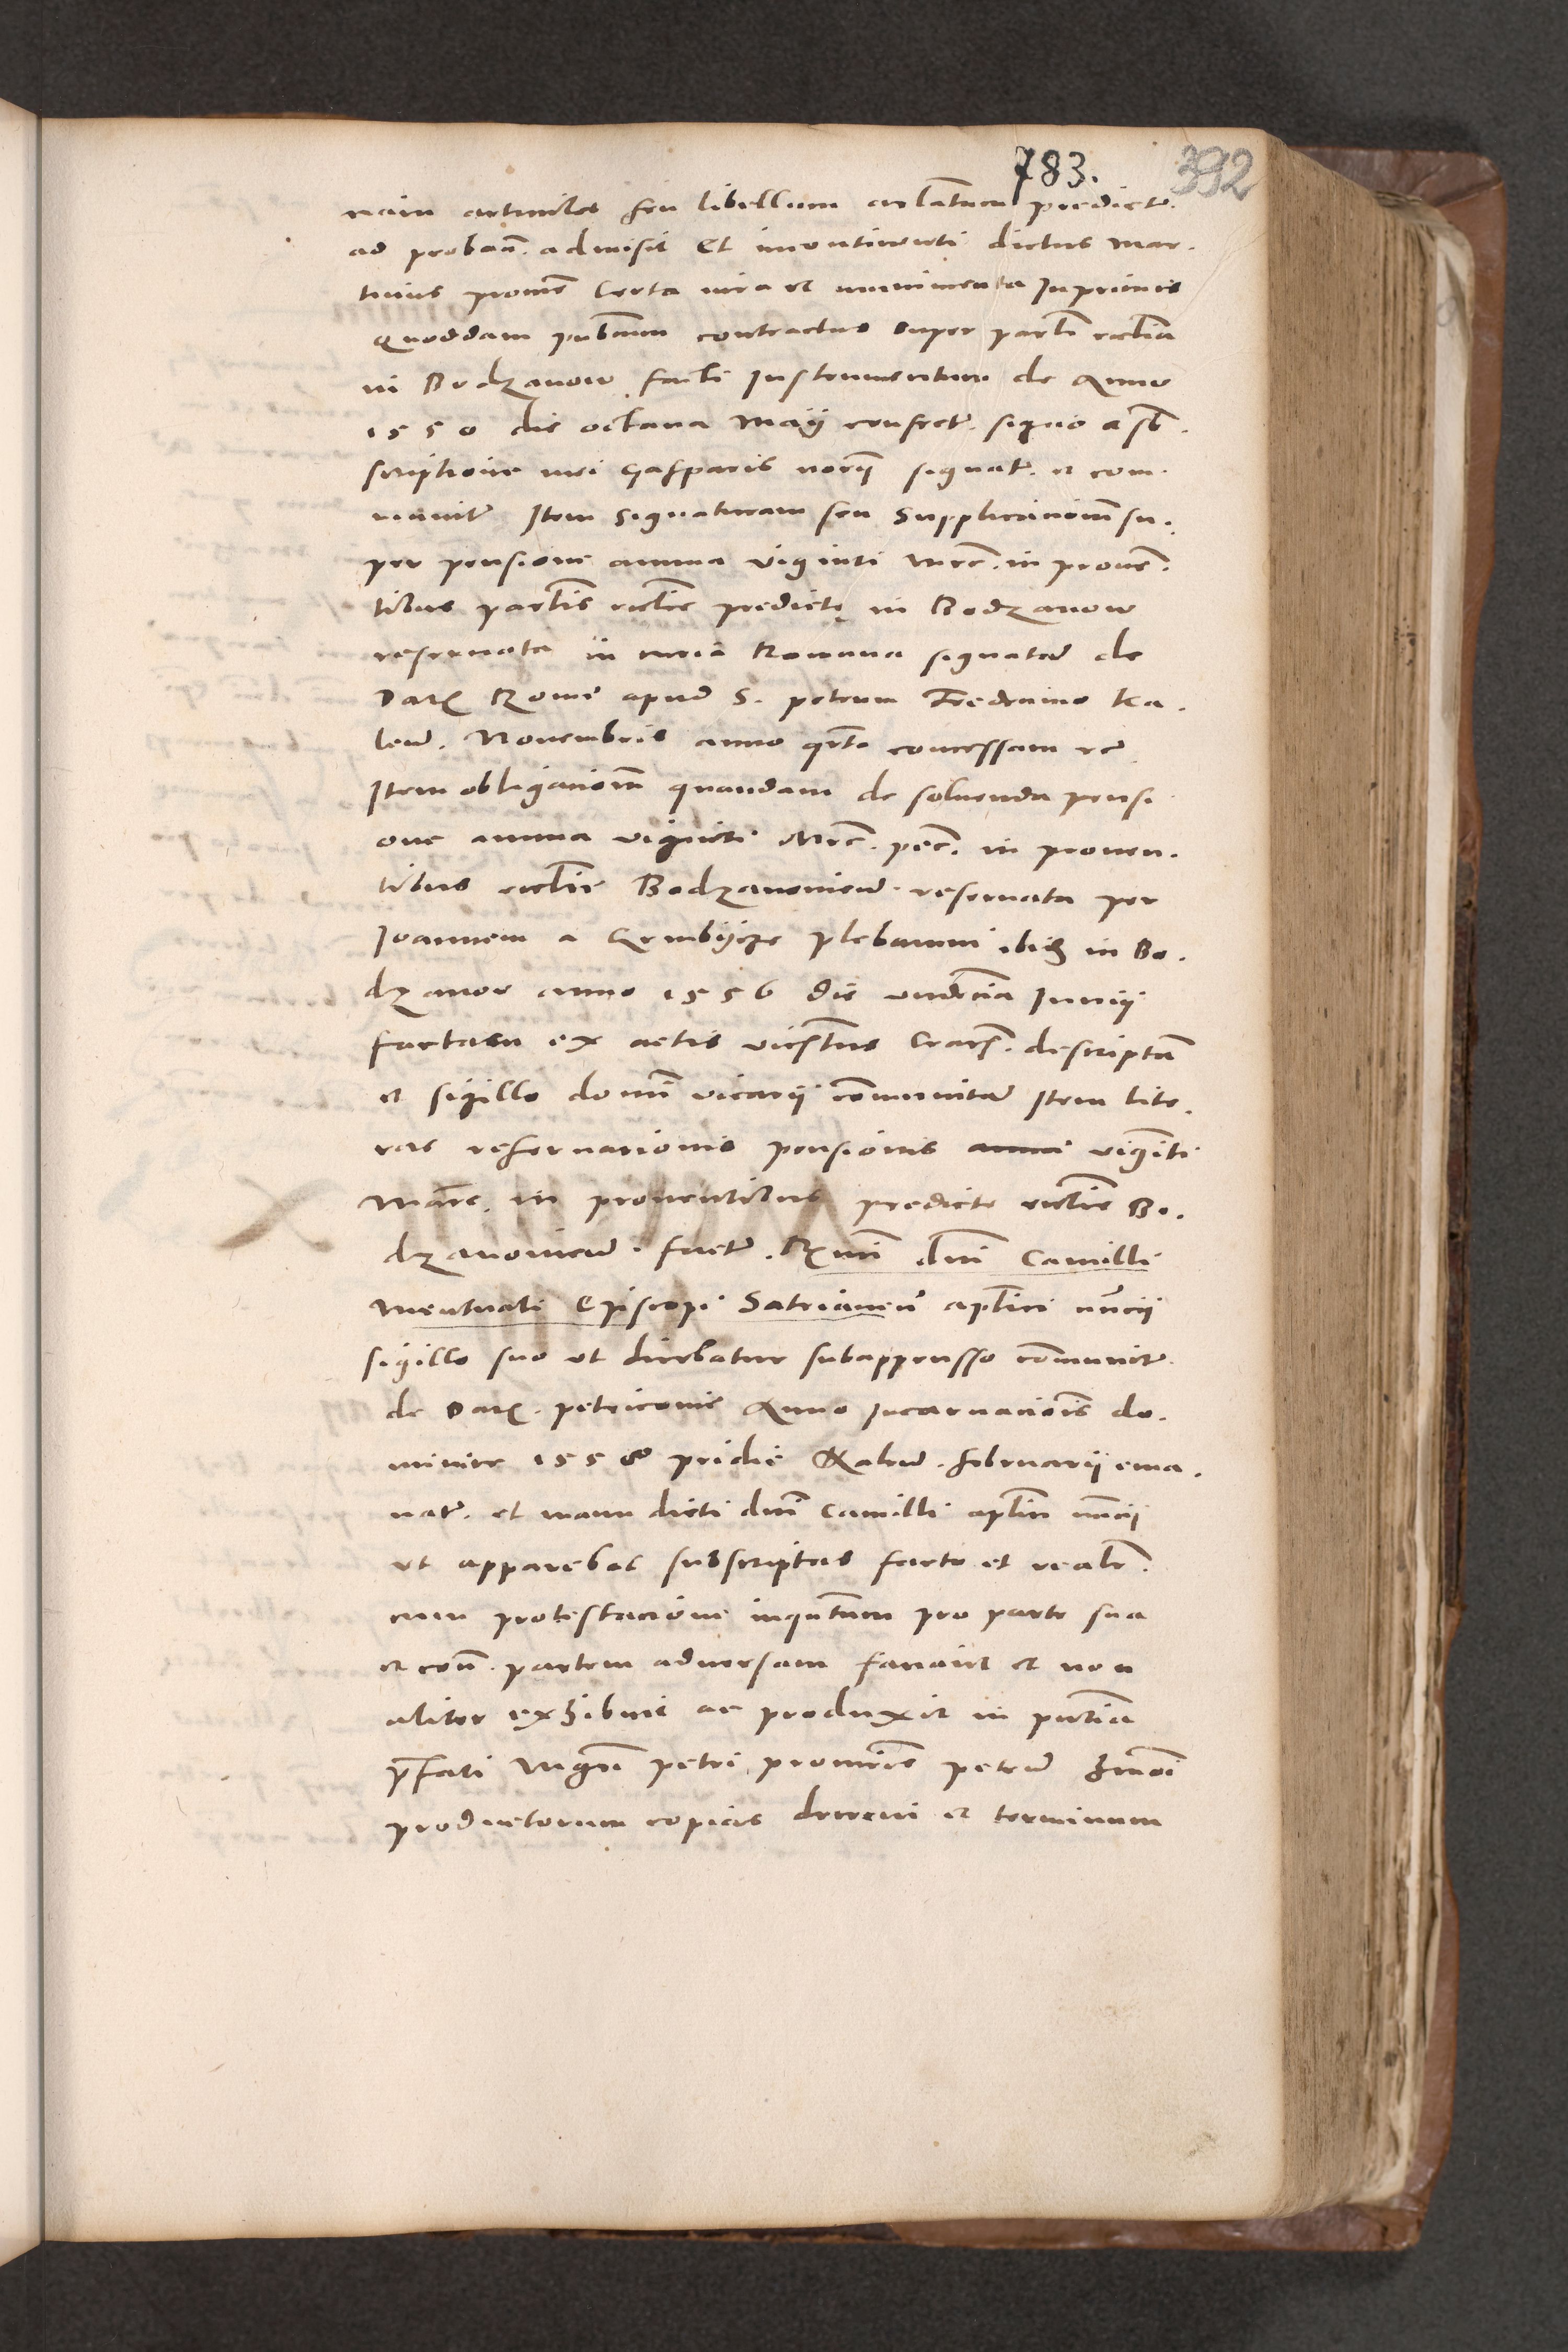 783.
392
nain articulos seu libellum oblatum predicte.
ad proband. admisit Et incontinenti dictus Mar.
tinus Certa iura et munimenta Inprimis
quoddam publicum contractus super parochi ecclia
in Bodzanow facti Instrumentum de Anno
1550 die octava Maÿ confect. signo a sb.
scriptione mei Gasparis notrij signat. et com.
munit Item Signaturam seu Supplicacionem su.
per pensione annua viginti mrc. in proven.
tibus parochis ecclie predicte in Bodzanow
reservata in curia Romana signatam de
Dat Rome apud S. petrum Ka.
lend. Novembris anno qrto concessam etc
Item obligacionem quandam de solvenda pensi
one annua viginti Mrc. pec. in proven.
tibus ecclie Bodzanovien. reservata per
Joannem a plebanum ibid in Bo.
dzanow anno 1556 die undecima Junij
factam ex actis Crac. descriptam
et sigillo domini vicarij communitam Item lite.
ras reservationis pensionis annue viginti
Marc. in proventibus predicte ecclie Bo.
dzanovien. fact. Rmi dni Camilli
Mentuati Episcopi Satrianen aplici nuncii
sigillo suo ut dicebatur subappensso communit.
de Dat. petricovie Anno Incarnacionis do.
minice 1558 pridie Kalend. februarij ema.
nat. et manu dicti dni Camilli aplici nuncij
ut apparebat subscriptas facto et realr.
cum protestacione inquantum pro parte sua
et con. partem adversam faciunt et non
aliter exhibuit ac produxit in pntia
prefati Mgri petri
productorum copias decrevi et terminum